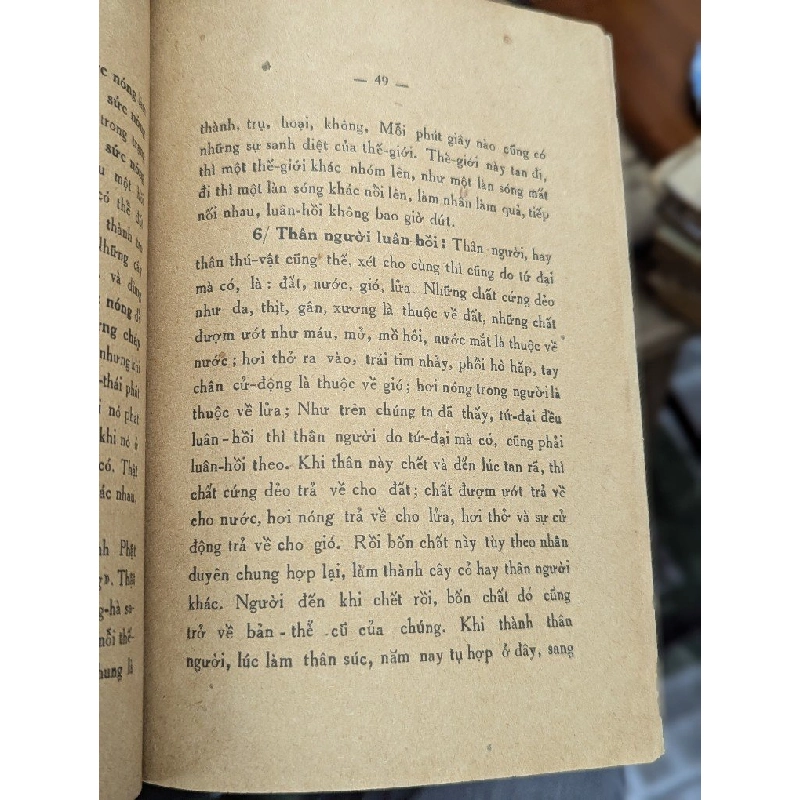 — 49 —
thành, trụ, hoại, không, Mỗi phút giây nào cũng có
những sự sanh diệt của thế-giới. Thế-giới này tan đi,
thì một thế-giới khác nhóm lên, như một làn sóng mất
đi thì một làn sóng khác nổi lên, làm nhân làm quả, tiếp
nối nhau, luân-hồi không bao giờ dứt.
6/ Thân người luân-hồi: Thân người, hay
thân thú-vật cũng thế, xét cho cùng thì cũng do tứ đại
mà có, là: đất, nước, gió, lửa. Những chất cứng dẻo
như da, thịt, gân, xương là thuộc về đất, những chất
đượm ướt như máu, mở, mồ hôi, nước mắt là thuộc về
nước; hơi thở ra vào, trái tim nhảy, phổi hô hấp, tay
chân cử-động là thuộc về gió; hơi nóng trong người là
thuộc về lửa; Như trên chúng ta đã thấy, tứ-đại đều
luân-hồi thì thân người do tứ-đại mà có, cũng phải
luân-hồi theo. Khi thân này chết và đến lúc tan rã, thì
chất cứng dẻo trả về cho đất; chất đượm ướt trả về
cho nước, hơi nóng trả về cho lửa, hơi thở và sự cử
động trả về cho gió. Rồi bốn chất này tùy theo nhân
duyên chung hợp lại, làm thành cây cỏ hay thân người
khác. Người đến khi chết rồi, bốn chất đó cũng
trở về bản-thể cũ của chúng. Khi thành thân
người, lúc làm thân súc, năm nay tụ hợp ở đây, sang
nóng
sức nóng
trong
sức nóng
một
có thể
thành
những
và
nóng
chảy
nhưng
-thái phát
nó phát
khi nó ở
có. Thật
ác nhau.
nh Phật
g». Thật
g-hà sa-
nổi thế-
hung là